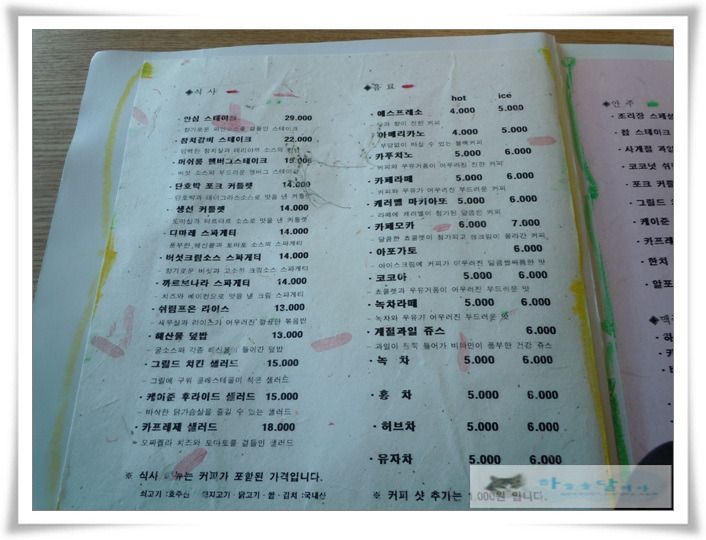 ◆식 사
· 안심 스테이크 29.000
향기로운 와인소스를 곁들인 스테이크
· 참치갈비 스테이크 22.000
담백한 참치살과 데리야끼 소스의 만남
· 머쉬룸 햄버그스테이크 15.000
버섯 소스와 부드러운 햄버그 스테이크
· 단호박 포크 커틀렛 14.000
단호박과 데미그라스소스로 맛을 낸 커틀렛
· 생선 커틀렛 14.000
도미살과 타르타르 소스로 맛을 낸 커틀렛
· 디마레 스파게티 14.000
풍부한 해산물과 토마토 소스의 스파게티
· 버섯크림소스 스파게티 14.000
향기로운 버섯과 고소한 크림소스 스파게티
· 까르보나라 스파게티 14.000
치즈와 베이컨으로 맛을 낸 크림 스파게티
· 쉬림프온 라이스 13.000
새우살과 라이스가 어우러진 깔끔한 볶음밥
· 해산물 덮밥 13.000
굴소스와 각종 해산물이 들어간 덮밥
· 그릴드 치킨 샐러드 15.000
그릴에 구워 콜레스테롤이 적은 샐러드
· 케이준 후라이드 샐러드 15.000
바삭한 닭가슴살을 즐길 수 있는 샐러드
· 카프레제 샐러드 18.000
모짜렐라 치즈와 도마토를 곁들인 샐러드
※ 식사 메뉴는 커피가 포함된 가격입니다.
쇠고기 :호주산 돼지고기 · 닭고기 · 쌀 · 김치 :국내산
◆음 료
hot ice
· 에스프레소 4.000 5.000
맛과 향이 진한 커피
· 아메리카노 4.000 5.000
부담없이 마실 수 있는 블랙커피
· 카푸치노 5.000 6.000
커피와 우유거품이 어우러진 진한 커피
· 카페라떼 5.000 6.000
커피와 우유가 어우러진 부드러운 커피
· 캐러멜 마키아또 5.000 6.000
라떼에 캐러멜이 첨가된 달콤한 커피
· 카페모카 6.000 7.000
달콤한 쵸콜렛이 첨가되고 생크림이 올라간 커피
· 아포가토 6.000
아이스크림에 커피가 어우러진 달콤쌉싸름한 맛
· 코코아 5.000 6.000
쵸콜렛과 우유거품이 어우러진 부드러운 맛
· 녹차라떼 5.000 6.000
녹차와 우유가 어우러진 부드러운 맛
· 계절과일 쥬스 6.000
과일이 듬뿍 들어가 비타민이 풍부한 건강 쥬스
· 녹 차 5.000 6.000
· 홍 차 5.000 6.000
· 허브차 5.000 6.000
· 유자차 5.000 6.000
※ 커피 샷 추가는 1.000원 입니다.
◆안 주
· 조리장 스페셜
· 찹 스테이크
· 사계절 과일
· 코코넛 쉬림
· 포크 커틀
· 그릴드
· 케이준
· 카프레
· 한치
· 알포
◆맥
· 하
· 카
· 버